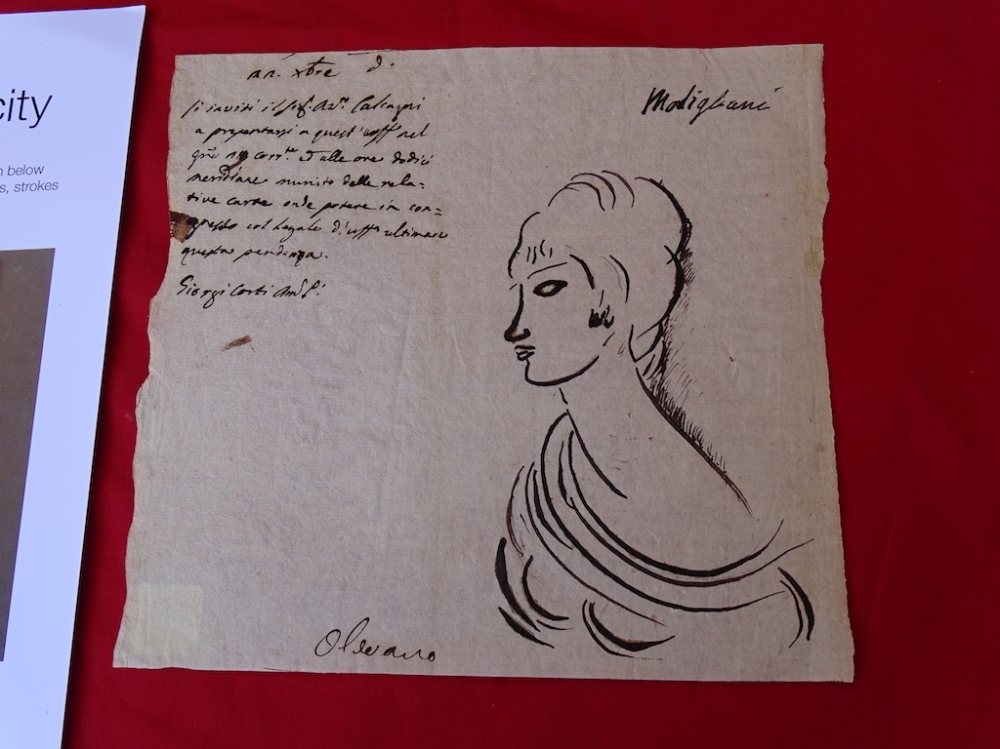 city
n below
s, strokes
Xbre
Si inviti il Sig.
a presentarsi a quest'uff nel
corr.te alle ore dodici
meridiane munito delle rela=
tive carte onde potere in con=
col Legale d'uff ultimare
questa pendenza.
Giorgi Corti
Modigliani
Olevano